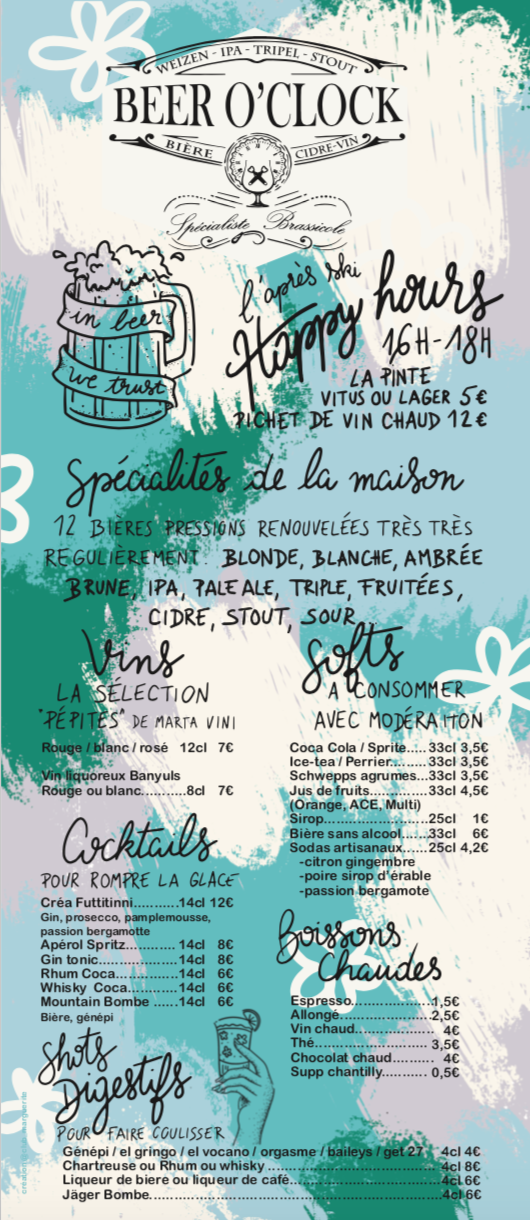 WEIZEN - IPA - TRIPEL - STOUT
BEER O'CLOCK
BIÈRE
CIDRE-VIN
Spécialiste Brassicole
in beer
we trust
l'après ski
Happy hours
16H-18H
LA PINTE
VITUS OU LAGER 5€
PICHET DE VIN CHAUD 12€
Spécialités de la maison
12 BIÈRES PRESSIONS RENOUVELÉES TRÈS TRÈS
REGULIÈREMENT: BLONDE, BLANCHE, AMBRÉE
BRUNE, IPA, PALE ALE, TRIPLE, FRUITÉES,
CIDRE, STOUT, SOUR
Vins
LA SÉLECTION
"PÉPITES" DE MARTA VINI
Rouge / blanc / rosé 12cl 7€
Vin liquoreux Banyuls
Rouge ou blanc..........8cl 7€
Cocktails
POUR ROMPRE LA GLACE
Créa Futtitinni..........14cl 12€
Gin, prosecco, pamplemousse,
passion bergamotte
Apérol Spritz............14cl 8€
Gin tonic..................14cl 8€
Rhum Coca..............14cl 6€
Whisky Coca...........14cl 6€
Mountain Bombe ......14cl 6€
Bière, génépi
Softs
A CONSOMMER
AVEC MODÉRAITON
Coca Cola / Sprite.....33cl 3,5€
Ice-tea / Perrier.........33cl 3,5€
Schwepps agrumes...33cl 3,5€
Jus de fruits..............33cl 4,5€
(Orange, ACE, Multi)
Sirop.........................25cl 1€
Bière sans alcool......33cl 6€
Sodas artisanaux......25cl 4,2€
-citron gingembre
-poire sirop d'érable
-passion bergamote
Boissons
Chaudes
Espresso...................1,5€
Allongé.....................2,5€
Vin chaud................. 4€
Thé........................... 3,5€
Chocolat chaud......... 4€
Supp chantilly.......... 0,5€
Shots
Digestifs
POUR FAIRE COULISSER
Génépi / el gringo / el vocano / orgasme / baileys / get 27 4cl 4€
Chartreuse ou Rhum ou whisky ....................................4cl 8€
Liqueur de biere ou liqueur de café...............................4cl 6€
Jäger Bombe................................................................4cl 6€